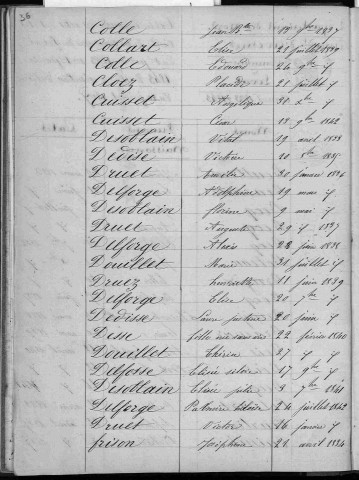 36
Colle Jean Bte 1837
Collart Elise 21 juillet 1837
Colle Edouard 24 9bre if
Cloez Placide 21 juillet if
Cuisset Angélique
Cuisset 1842
Desoblain Vital 19 avril 1838
Dedise Victoire
Druet Amélie 20 janvier 1836
Delforge Adolphine 19 mai if
Desoblain florine 9 mai if
Druet Auguste 29 if 1837
Delforge Alexis 28 juin 1838
Douillet Marie 31 juillet if
Druez henriette 11 juin 1839
Delforge Elise 20 7bre if
Dedisse Laure justine 20 juin if
Desse folle née 22 février 1840
Douillet Thérèse 27 if if
Delfosse Elisée 17 9bre if
Desoblain Elisée 1841
Delforge Palmire 24 juillet 1842
Druet Victor 16 janvier if
frison joséphine 21 avril 1834